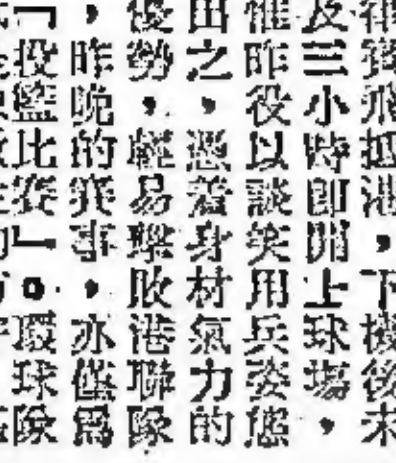 賽飛抵港，下機後未
及三小時即開上球場，
惟昨役以談笑用兵姿態
田之，恐着身材氣力的
優勢，輕易擊敗港聯隊
，昨晚的賽事，亦僅爲
「投籃比賽」。環球隊